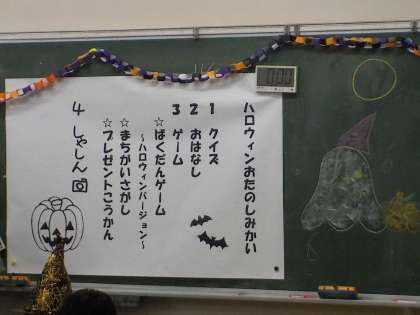 ハロウィンおたのしみかい
1 クイズ
2 おはなし
3 ゲーム
☆ばくだんゲーム
～ハロウィンバージョン～
☆まちがいさがし
☆プレゼントこうかん
4 しゃしん